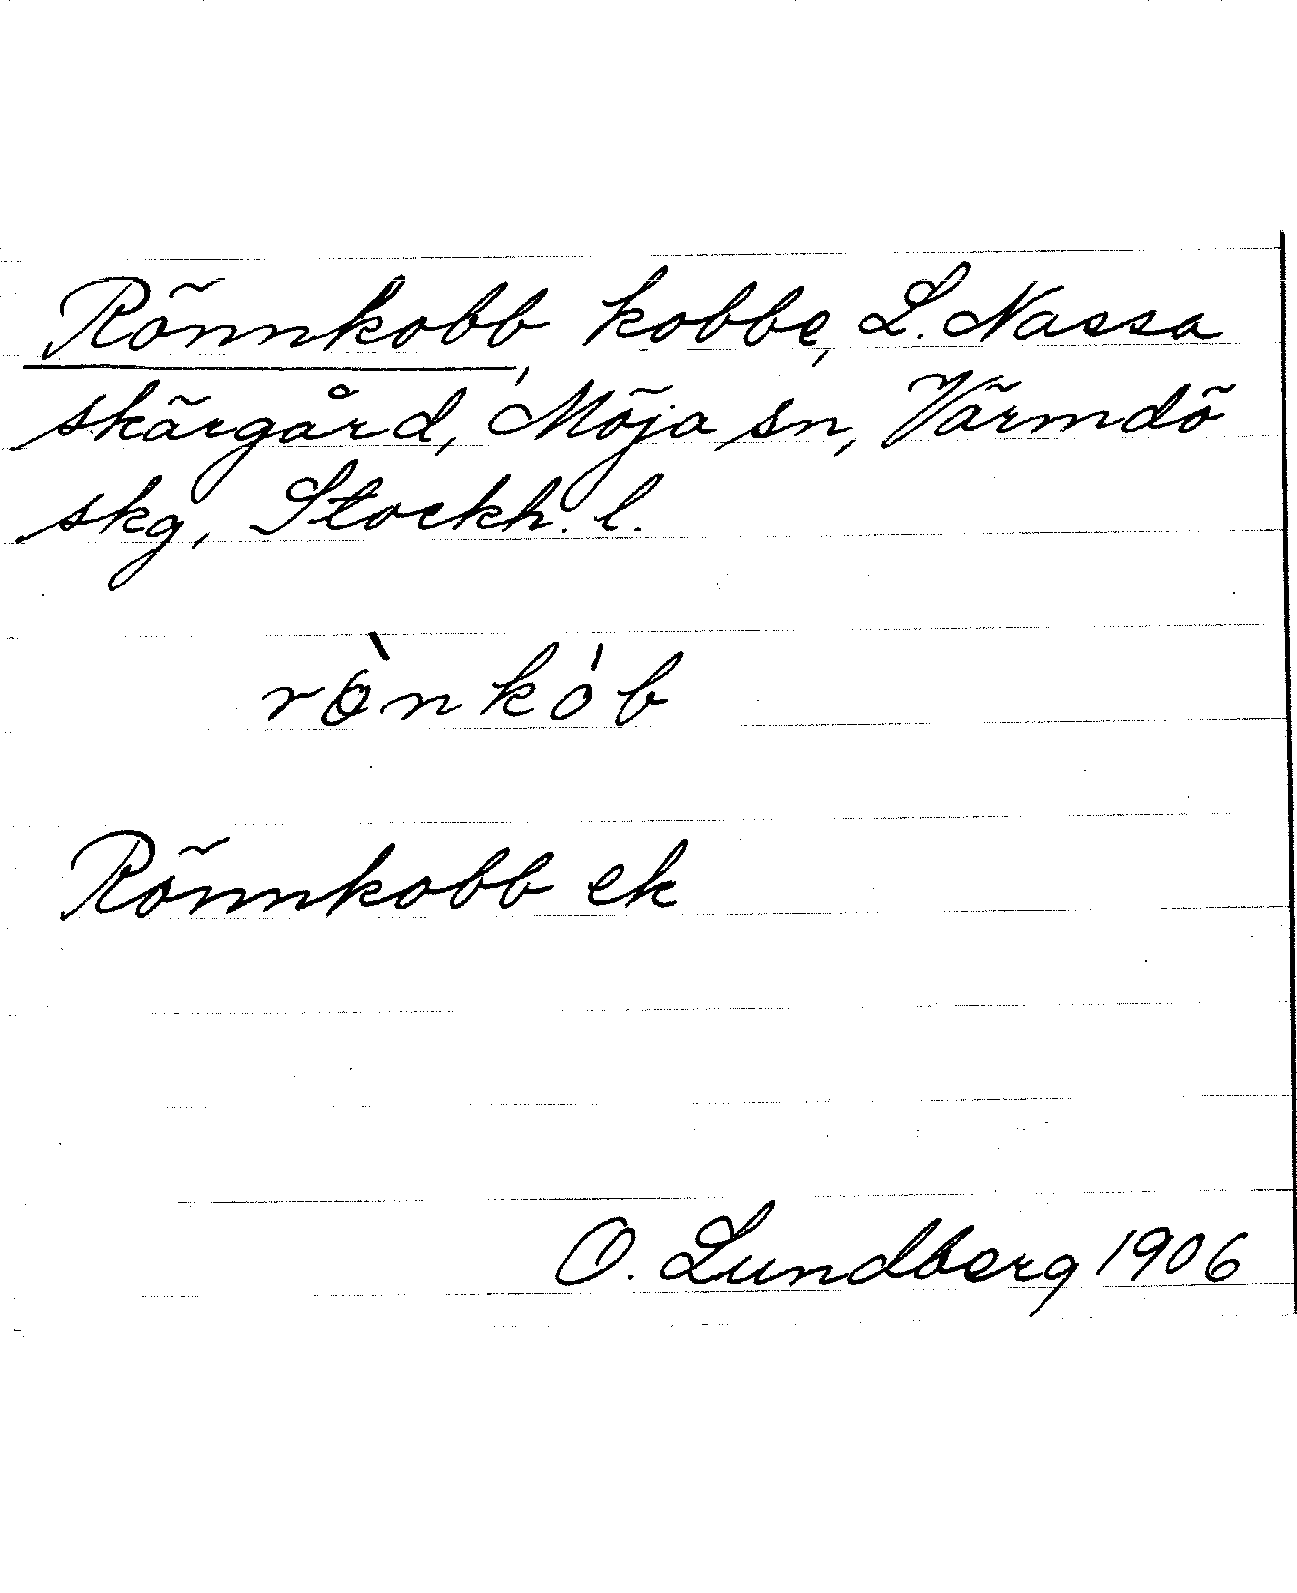 Rönnkobb, kobbe, L. Nassa
skärgård, Möja sn, Värmdö
skg, Stockh. l.
rònkób
Rönnkobb ek
O. Lundberg 1906